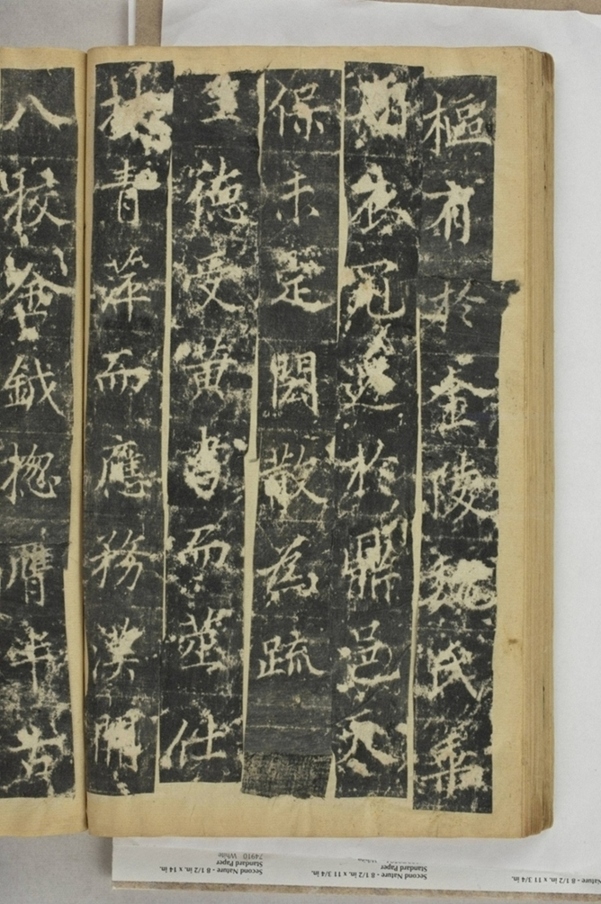 樞有於金陵魏氏乘
衣冠遷於鼎邑天
保未定閎散為疏
德受黃而莅仕
青萍而應務漢開
八校金鉞摠膺半古
Second Nature - 8 1/2 in. x 11 3/4 in.
Standard Paper
Second Nature - 8 1/2 in. x 14 in.
Standard Paper
74910 White